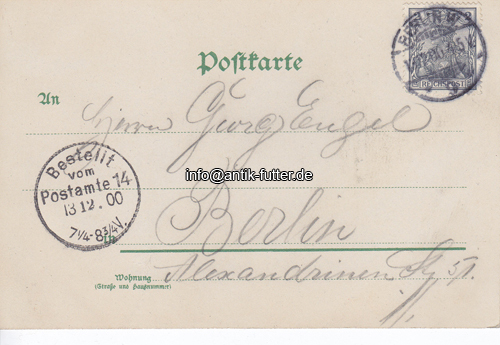 Postkarte
BERLIN W.
REICHSPOST
An
Herrn Georg Engel
Bestellt
vom
Postamte 14
13 12. 00
7¼-8¾V.
info@antik-futter.de
in
Berlin
Wohnung
(Straße und Hausnummer)
Alexandrinen Str. 51.